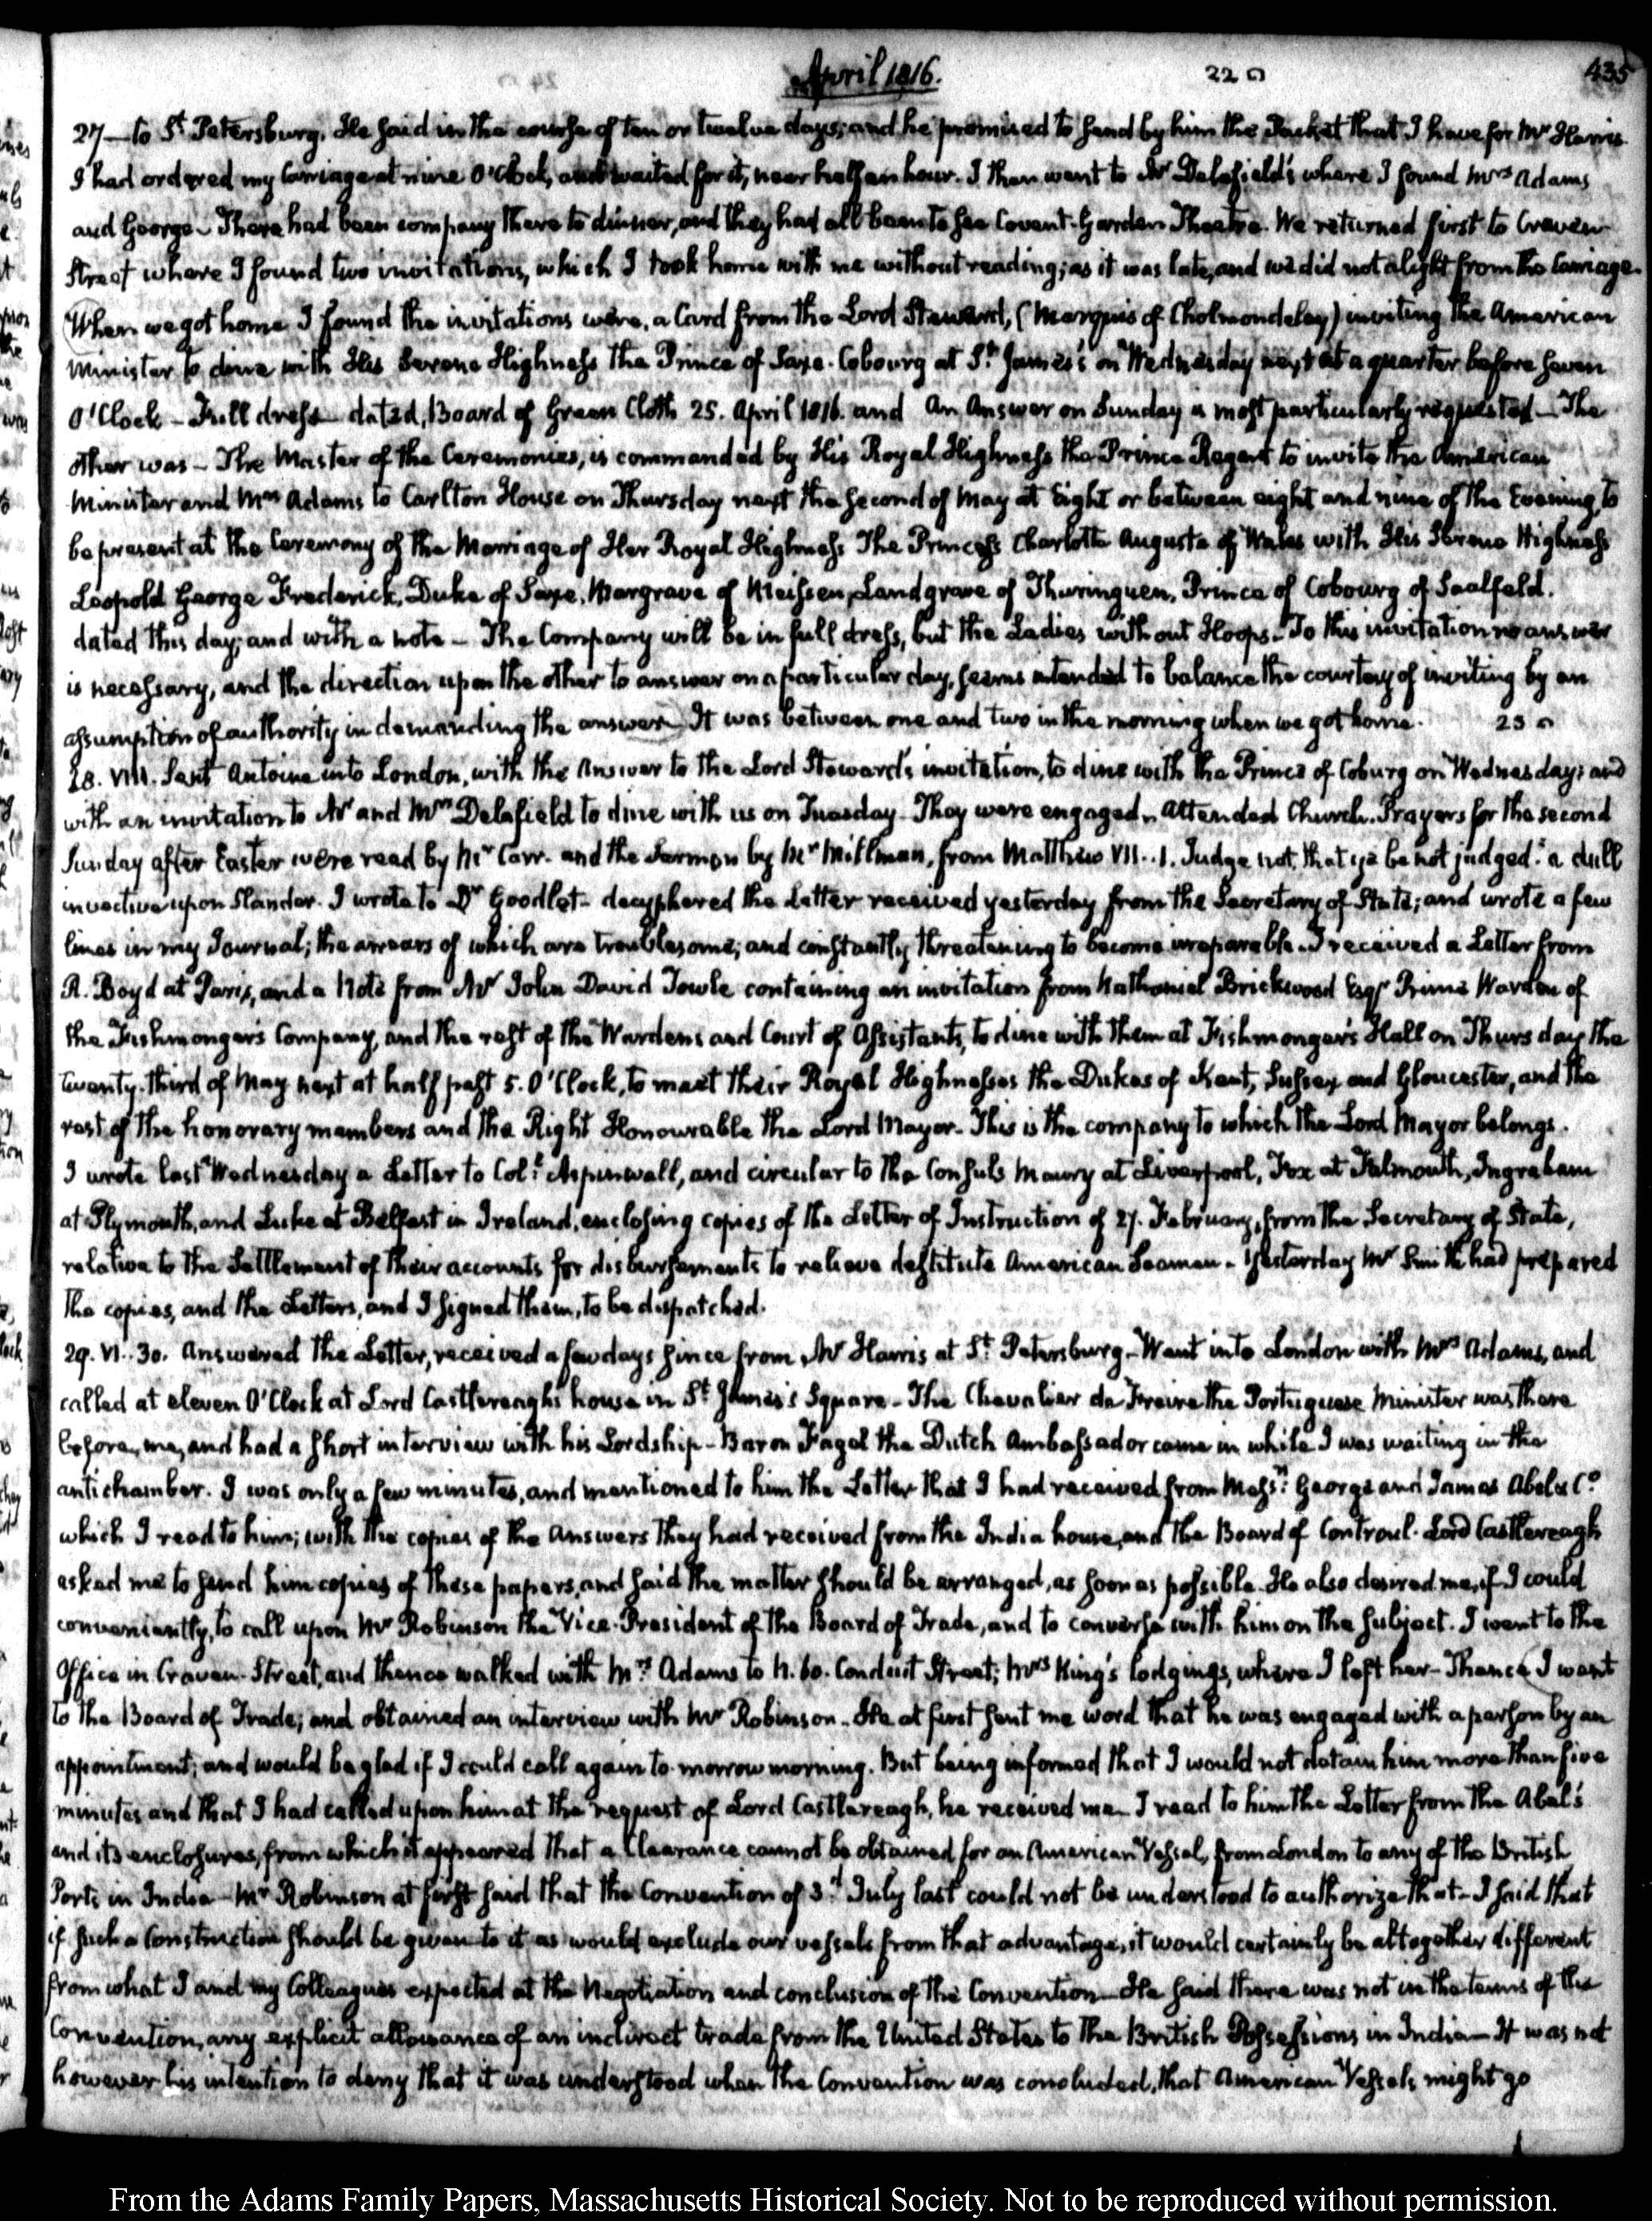 April 1816.
22 ⊓
435
27 — to St. Petersburg. He said in the course of ten or twelve days; and he promised to send by him the Packet that I have for Mr Harris
I had ordered my Carriage at nine O'Clock, and waited for it, near half an hour. I then went to Mr Delafield's where I found Mrs Adams
and George. There had been company there to dinner, and they had all been to see Covent-Garden Theatre. We returned first to Craven
Street where I found two invitations, which I took home with me without reading; as it was late, and we did not alight from the Carriage.
When we got home I found the invitations were, a Card from the Lord Steward, (Marquis of Cholmondeley) inviting the American
Minister to dine with His Serene Highness the Prince of Saxe-Cobourg at St. James's on Wednesday next at a quarter before seven
O'Clock — Full dress — dated, Board of Green Cloth 25. April 1816. and An Answer on Sunday is most particularly requested — The
other was — The Master of the Ceremonies, is commanded by His Royal Highness the Prince Regent to invite the American
Minister and Mrs Adams to Carlton House on Thursday next the second of May at Eight or between eight and nine of the Evening, to
be present at the Ceremony of the Marriage of Her Royal Highness The Princess Charlotte Augusta of Wales with His Serene Highness
Leopold George Frederick, Duke of Saxe, Margrave of Meissen, Landgrave of Thuringuen, Prince of Cobourg of Saalfeld.
dated this day; and with a note — The Company will be in full dress, but the Ladies without Hoops — To this invitation no answer
is necessary, and the direction upon the other to answer on a particular day, seems intended to balance the courtesy of inviting by an
assumption of authority in demanding the answer — It was between one and two in the morning when we got home. 23 ⊓
28. VIII. Sent Antoine into London, with the Answer to the Lord Steward's invitation, to dine with the Prince of Coburg on Wednesday; and
with an invitation to Mr and Mrs Delafield to dine with us on Tuesday. They were engaged. Attended Church. Prayers for the second
Sunday after Easter were read by Mr Carr. and the Sermon by Mr Millman, from Matthew VII..1. Judge not, that ye be not judged: a dull
invective upon Slander. I wrote to Dr Goodlet — decyphered the Letter received yesterday from the Secretary of State; and wrote a few
lines in my Journal; the arrears of which are troublesome; and constantly threatening to become irreparable. I received a Letter from
R. Boyd at Paris, and a Note from Mr John David Towle containing an invitation from Nathaniel Brickwood Esqr Prime Warden of
the Fishmonger's Company, and the rest of the Wardens and Court of Assistants, to dine with them at Fishmonger's Hall on Thursday the
twenty-third of May next at half past 5. O'Clock, to meet their Royal Highnesses the Dukes of Kent, Sussex and Gloucester, and the
rest of the honorary members and the Right Honourable the Lord Mayor. This is the company to which the Lord Mayor belongs.
I wrote last Wednesday a Letter to Col. Aspinwall, and circular to the Consuls Maury at Liverpool, Fox at Falmouth, Ingraham
at Plymouth, and Luke at Belfast in Ireland, enclosing copies of the Letter of Instruction of 27. February, from the Secretary of State,
relative to the Settlement of their accounts for disbursements to relieve destitute American Seamen. Yesterday Mr Smith had prepared
the copies, and the Letters, and I signed them, to be dispatched.
29. VI..30. Answered the Letter, received a few days since from Mr Harris at St. Petersburg — Went into London with Mrs Adams, and
called at eleven O'Clock at Lord Castlereagh's house in St. James's Square — The Chevalier de Freire the Portuguese Minister was there
before me, and had a short interview with his Lordship — Baron Fagel the Dutch Ambassador came in while I was waiting in the
antichamber. I was only a few minutes, and mentioned to him the Letter that I had received from Messrs George and James Abel & Co.
which I read to him; with the copies of the Answers they had received from the India house, and the Board of Controul. Lord Castlereagh
asked me to send him copies of these papers, and said the matter should be arranged, as soon as possible. He also desired me, if I could
conveniently, to call upon Mr Robinson the Vice-President of the Board of Trade, and to converse with him on the subject. I went to the
Office in Craven-Street, and thence walked with Mrs Adams to N. 60. Conduit Street; Mrs King's lodgings, where I left her — Thence I went
to the Board of Trade; and obtained an interview with Mr Robinson. He at first sent me word that he was engaged with a person by an
appointment; and would be glad if I could call again to-morrow morning. But being informed that I would not detain him more than five
minutes and that I had called upon him at the request of Lord Castlereagh, he received me. I read to him the Letter from the Abel's
and its enclosures, from which it appeared that a Clearance cannot be obtained for an American Vessel, from London to any of the British
Ports in India — Mr Robinson at first said that the Convention of 3d July last could not be understood to authorize that — I said that
if such a Construction should be given to it as would exclude our vessels from that advantage, it would certainly be altogether different
from what I and my Colleagues expected at the Negotiation and conclusion of the Convention — He said there was not in the terms of the
Convention, any explicit allowance of an indirect trade from the United States to the British Possessions in India — It was not
however his intention to deny that it was understood when the Convention was concluded, that American Vessels might go
From the Adams Family Papers, Massachusetts Historical Society. Not to be reproduced without permission.